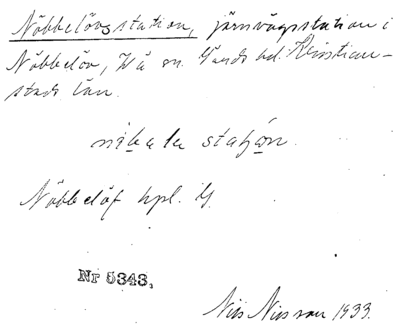 Nöbbelövs station, järnvägsstation i
Nöbbelöv, Vä sn. Gärds hd. Kristian-
stads län.
Nöbbelöf hpl. G.
Nr 5343.
Nils Nilsson 1933.